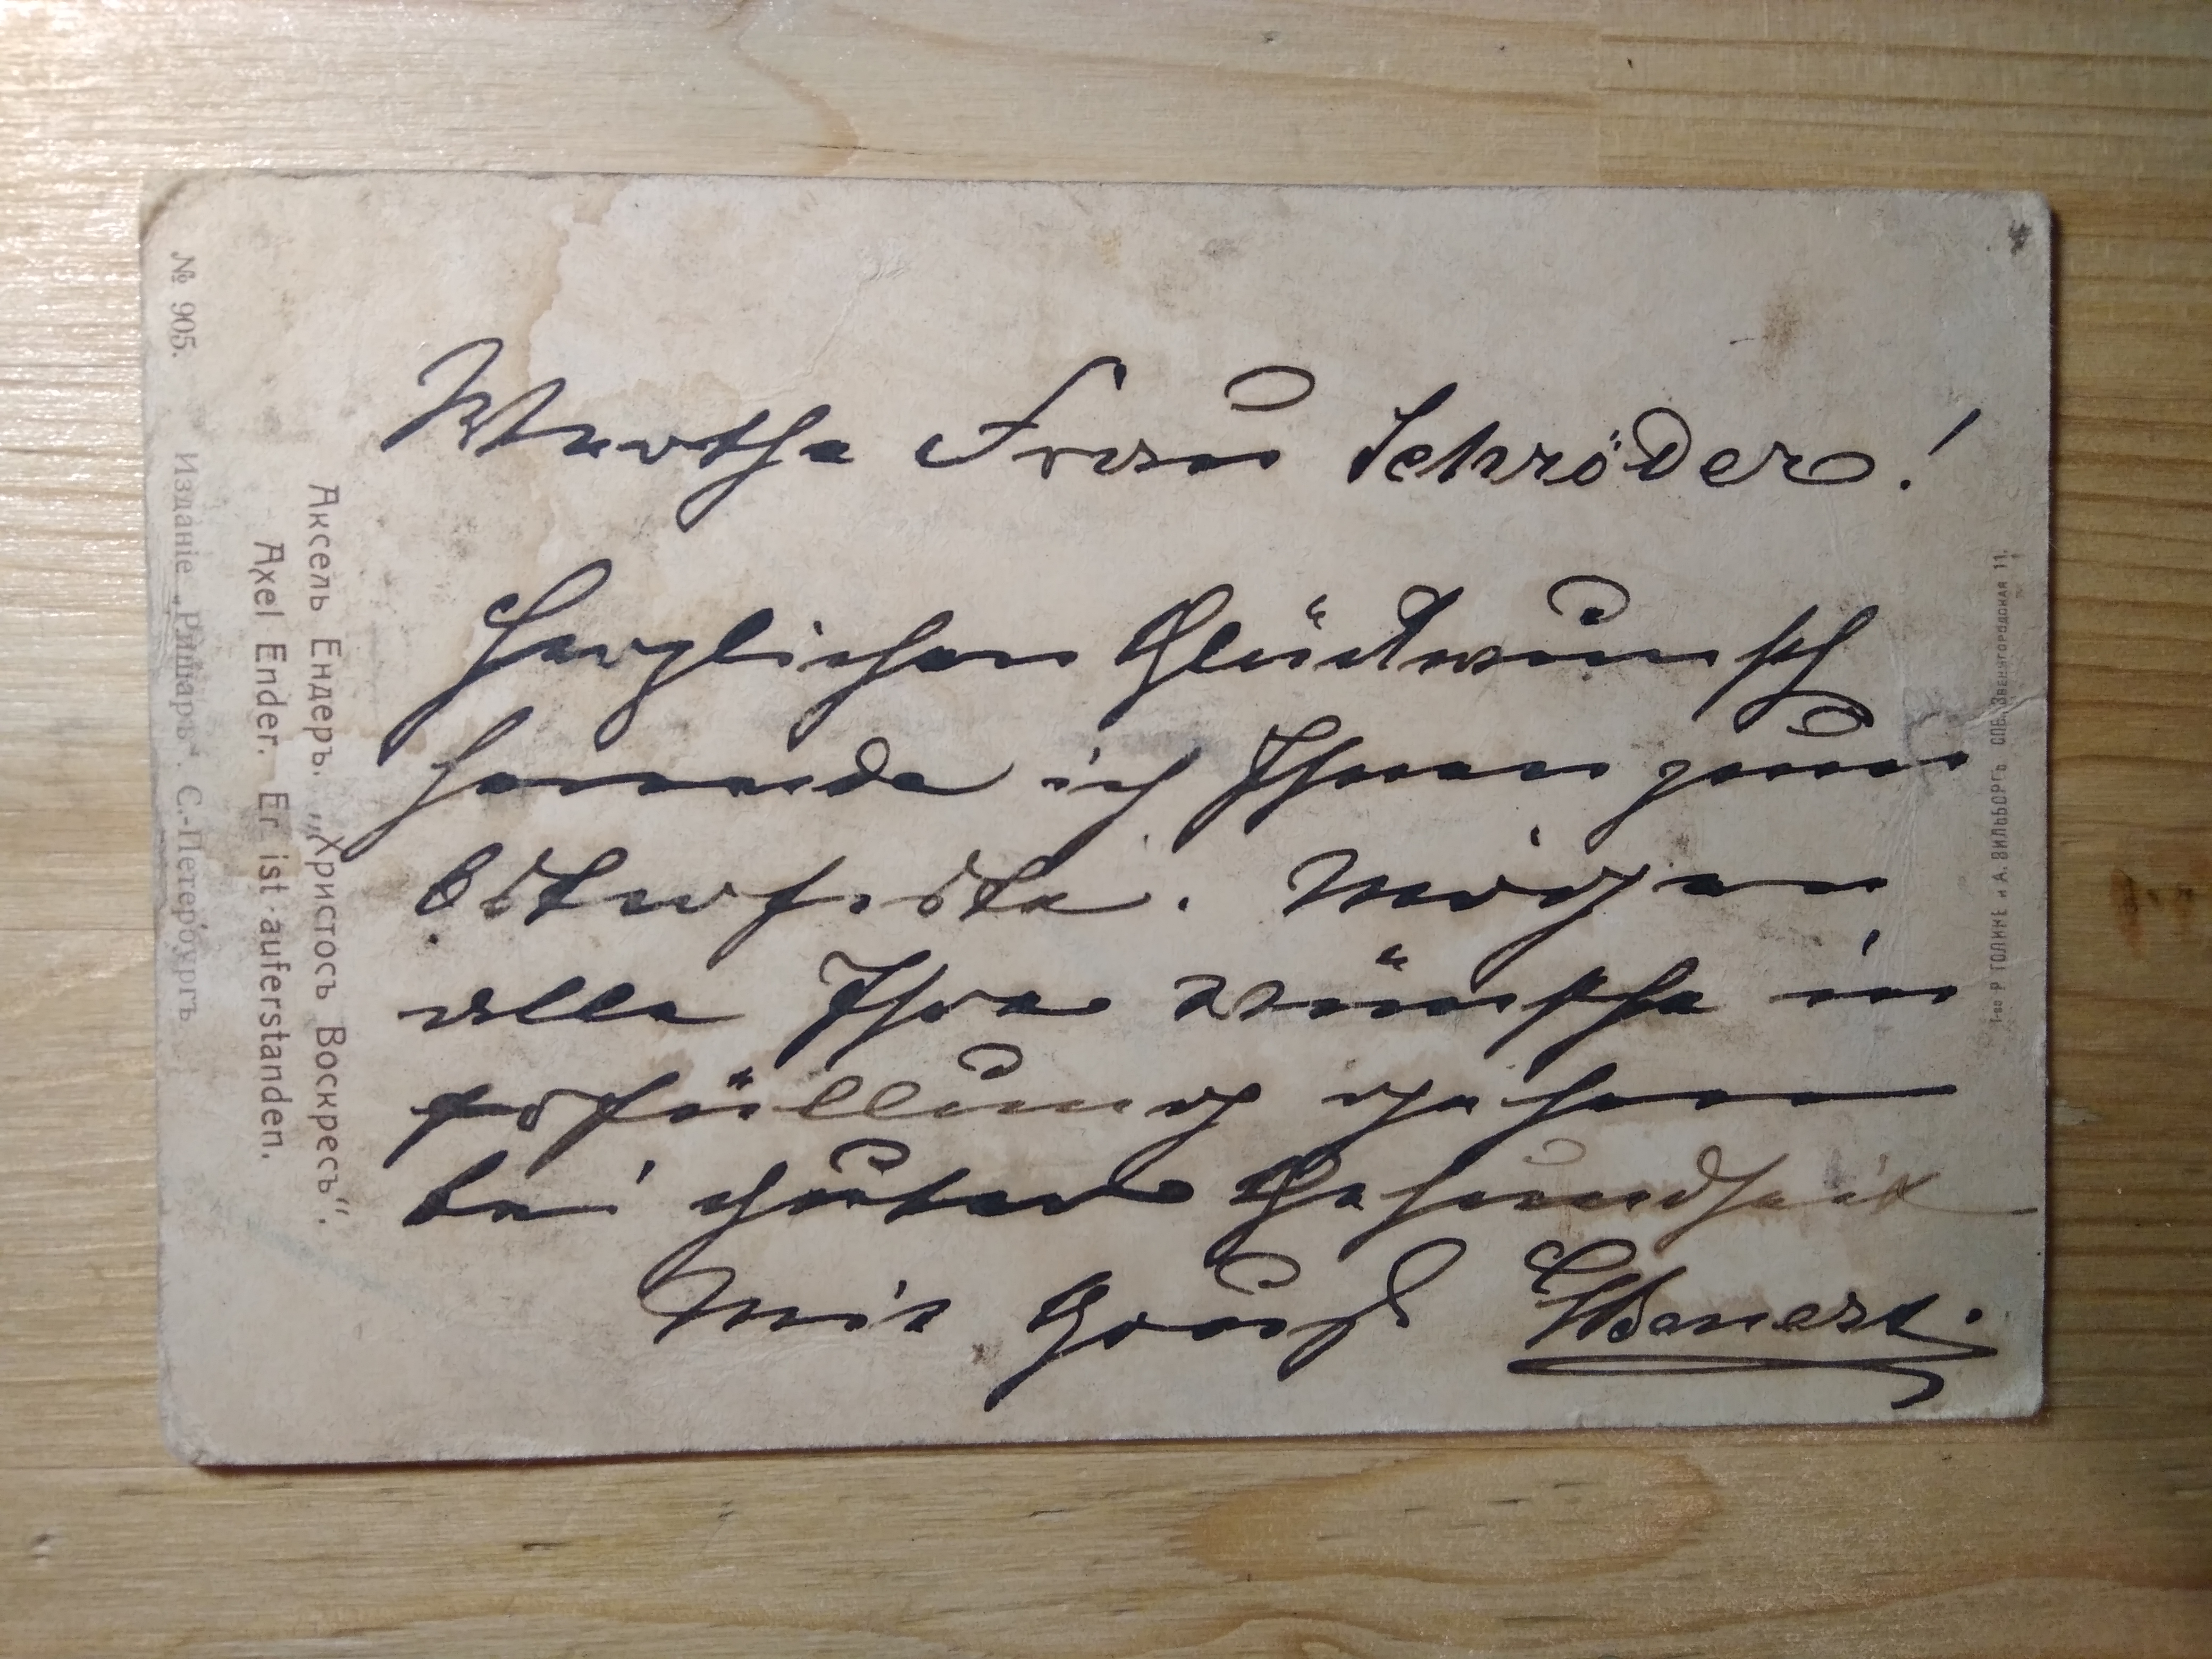 Werthe Frau Schröder!
Herzlichen Glückwunsch
sende ich Ihnen zum
Osterfeste. Mögen
alle Ihre Wünsche in
Erfüllung gehen
bei guter Gesundheit
Mit Gruß
№ 905.
Изданіе „Ришаръ“. С.-Петербургъ
Аксель Ендеръ. „Христосъ Воскресъ“.
Axel Ender. Er ist auferstanden.
Т-во Р. ГОЛИКЕ и А. ВИЛЬБОРГЪ СПБ. ЗВЕНИГОРОДСКАЯ 11.